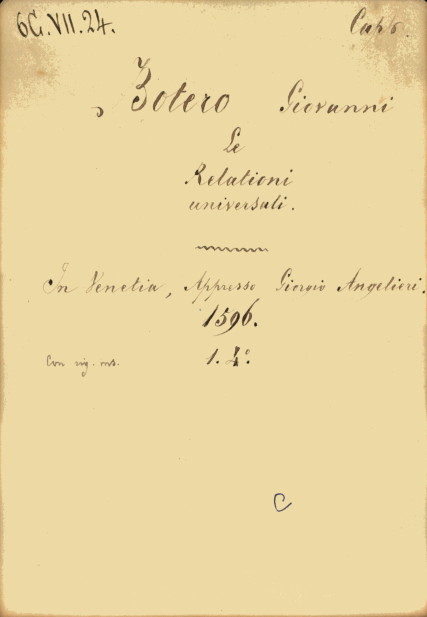 6C.VII.24.
Botero Giovanni
Le
Relationi
universali.
In Venetia, Appresso Giorgio Angelieri.
1596.
Con sig. ms. 1. 4°.
C